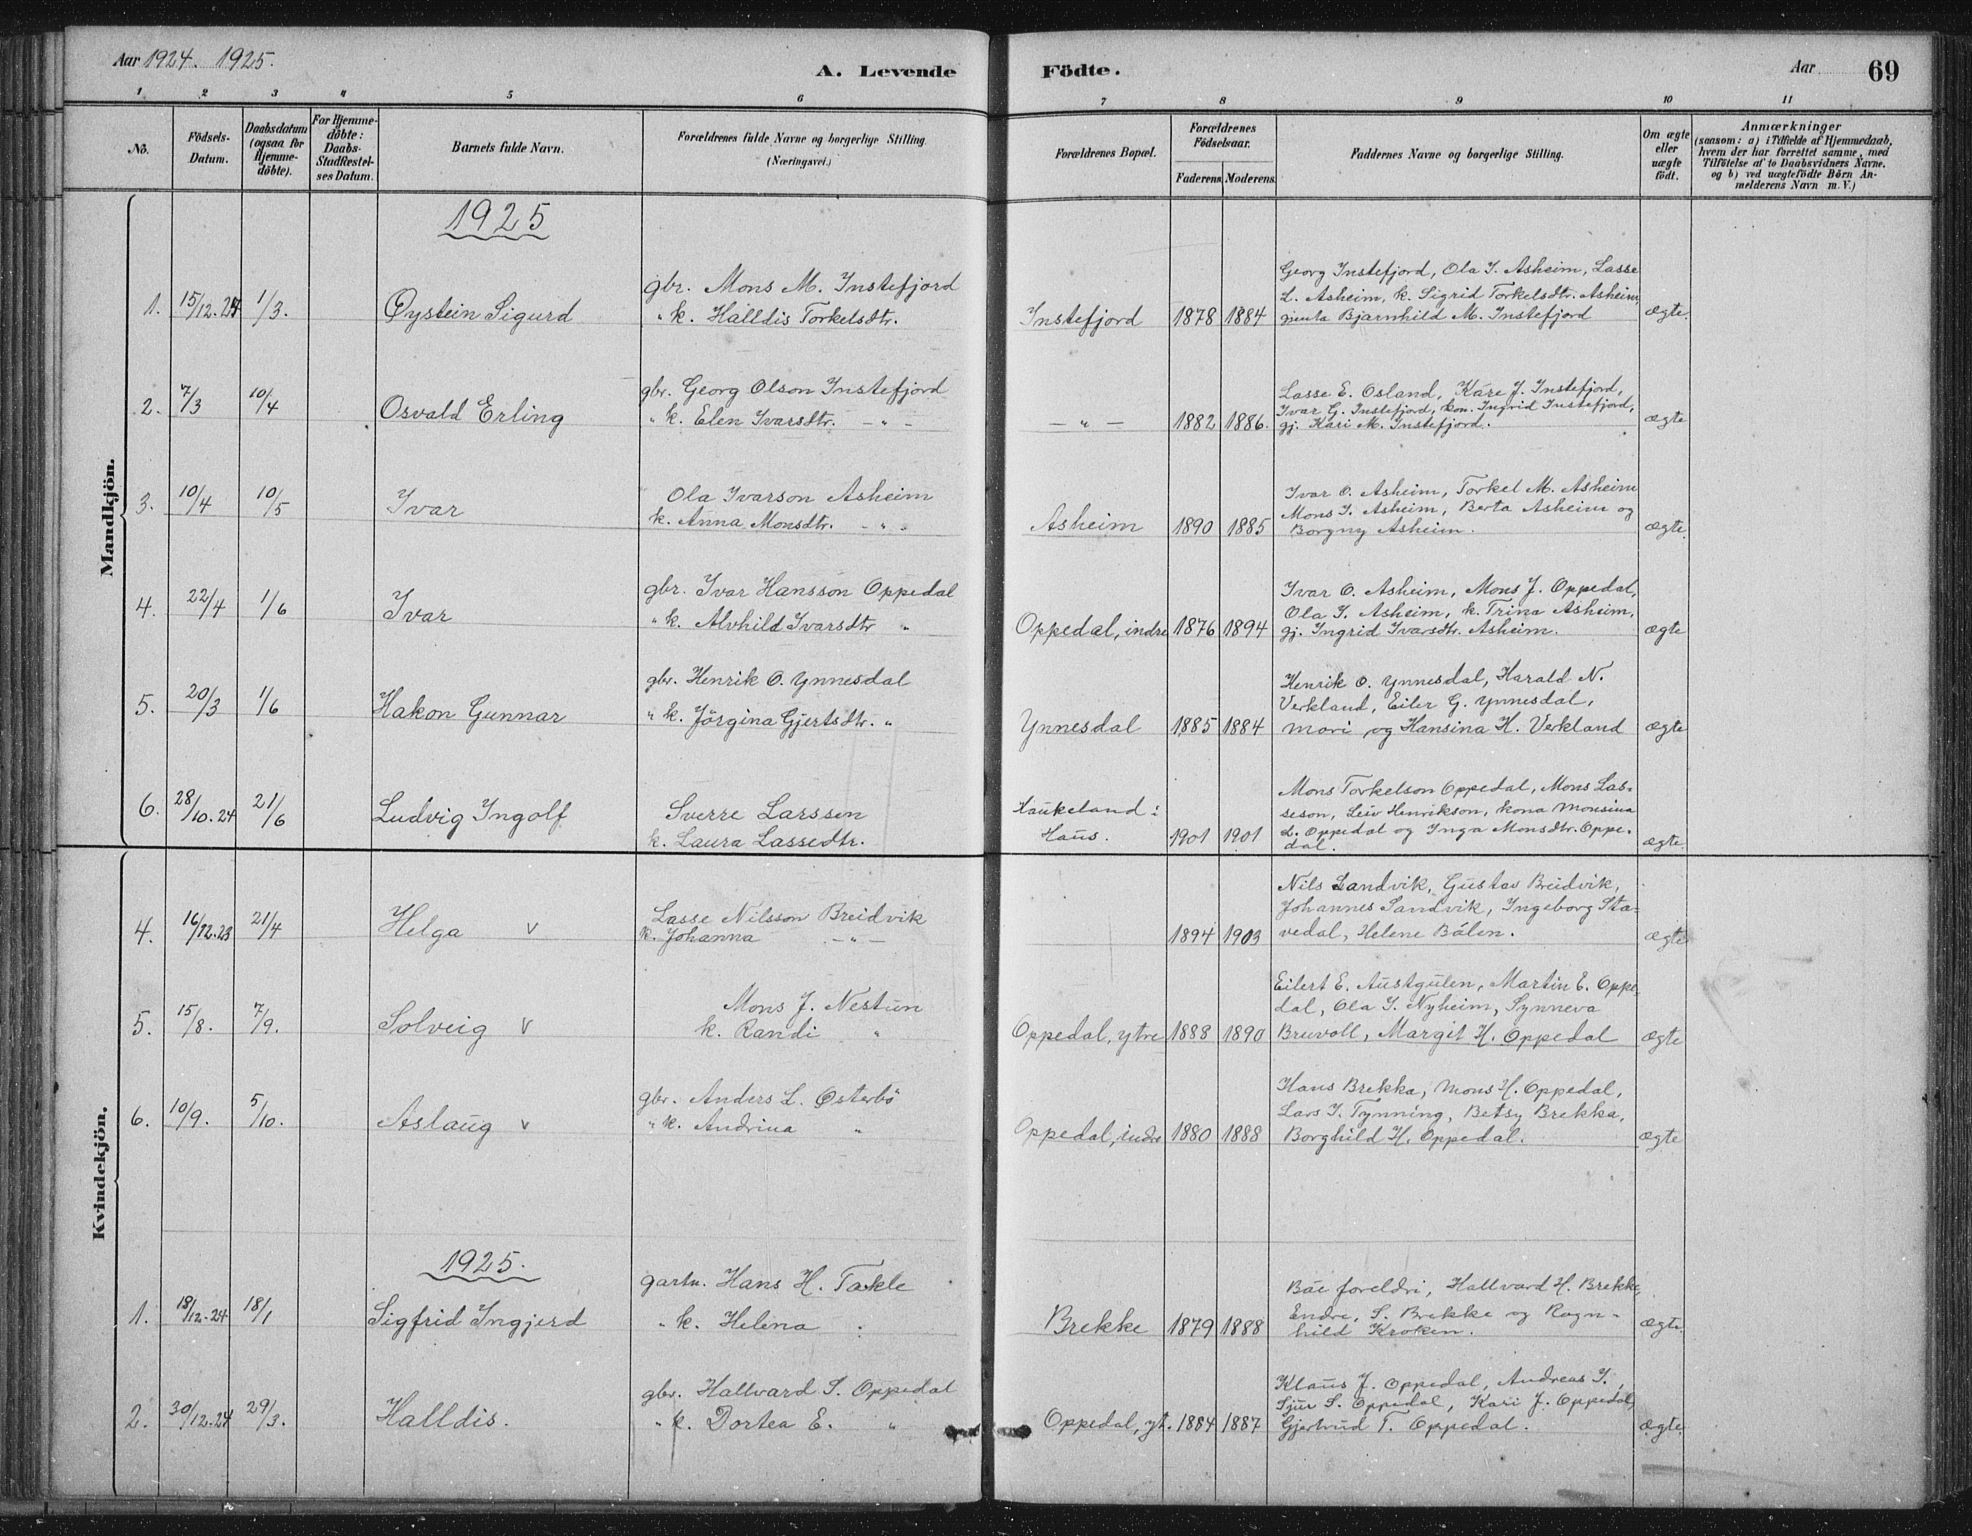 Aar 1924. 1925.
A. Levende Födte.
Aar 69
1 2 3 4 5 6 7 8 9 10 11
No.
Födsels-
Datum.
Daabsdatum
(ogsaa for
Hjemme-
döbte).
For Hjemme-
döbte:
Daabs-
Stadfæstel-
ses Datum.
Barnets fulde Navn.
Forældrenes fulde Navne og borgerlige Stilling
(Næringsvei.)
Forældrenes Bopæl.
Forældrenes
Födselsaar.
Faderens Moderens.
Faddernes Navne og borgerlige Stilling.
Om ægte
eller
uægte
födt.
Anmærkninger
(saasom: a) i Tilfælde af Hjemmedaab,
hvem der har forrettet samme, med
Tilföielse af to Daabsvidners Navne,
og b) ved uægtefödte Börn An-
melderens Navn m. V.)
Mandkjön.
1925
1. 15/12.24 1/3. Øystein Sigurd
gbr. Mons M. Instefjord
" k. Halldis Torkelsdtr.
Instefjord 1878 1884
Georg Instefjord, Ola I. Asheim, Lasse
L. Asheim, k. Sigrid Torkelsdtr. Asheim,
gjenta Bjarnhild M. Instefjord
ægte.
2. 7/3 10/4 Osvald Erling
gbr. Georg Olson Instefjord
" k. Elen Ivarsdtr. — " —
— " — 1882 1886.
Lasse E. Osland, Kåre J. Instefjord,
Ivar G. Instefjord, kon. Ingrid Instefjord,
gj. Kari M. Instefjord.
ægte
3. 10/4 10/5 Ivar
Ola Ivarson Asheim
k. Anna Monsdtr. — " —
Asheim 1890 1885
Ivar O. Asheim, Torkel M. Asheim
Mons I. Asheim, Berta Asheim og
Borgny Asheim.
ægte.
4. 22/4 1/6 Ivar
gbr. Ivar Hansson Oppedal
" k. Alvhild Ivarsdtr "
Oppedal, indre 1876 1894
Ivar O. Asheim, Mons J. Oppedal,
Ola I. Asheim, k. Trina Asheim,
gj. Ingrid Ivarsdtr. Asheim.
ægte
5. 20/3 1/6 Hakon Gunnar
gbr. Henrik O. Ynnesdal
" k. Jörgina Gjertsdtr. "
Ynnesdal 1885 1884
Henrik O. Ynnesdal, Harald N.
Verkland, Eiler G. Ynnesdal,
mori og Hansina H. Verkland
ægte
6. 28/10.24 21/6 Ludvig Ingolf
Sverre Larssen
k. Laura Lassedtr.
Haukeland i
Haus. 1901 1901
Mons Torkelson Oppedal, Mons Las-
seson, Leiv Henrikson, kona Monsina
L. Oppedal og Inga Monsdtr. Oppe-
dal.
ægte.
Kvindekjön.
4. 16/12.23 21/4 Helga v
Lasse Nilsson Breidvik
k. Johanna — " —
1894 1903
Nils Sandvik, Gustav Breidvik,
Johannes Sandvik, Ingeborg Sta-
vedal, Helene Bålen.
ægte
5. 15/8. 7/9. Solveig v
Mons J. Nestun
k. Randi "
Oppedal, ytre 1888 1890
Eilert E. Austgulen, Martin E. Oppe-
dal, Ola I. Nyheim, Synneva
Bruvoll, Margit H. Oppedal
ægte
6. 10/9. 5/10. Aslaug v
gbr. Anders L. Østerbö
" k. Andrina "
Oppedal, indre 1880 1888
Hans Brekka, Mons H. Oppedal,
Lars I. Tynning, Betsy Brekka,
Borghild H. Oppedal.
ægte
1925.
1. 18/12.24 18/1 Sigfrid Ingjerd
gartn. Hans H. Takle
" k. Helena "
Brekke 1879 1888
Båe foreldri, Hallvard H. Brekke,
Endre S. Brekke og Ragn-
hild Kroken.
ægte.
2. 30/12.24 29/3. Halldis.
gbr. Hallvard S. Oppedal
" k. Dortea E. "
Oppedal, yt. 1884 1887
Klaus J. Oppedal, Andreas I.,
Sjur S. Oppedal, Kari J. Oppedal,
Gjertrud T. Oppedal.
ægte.